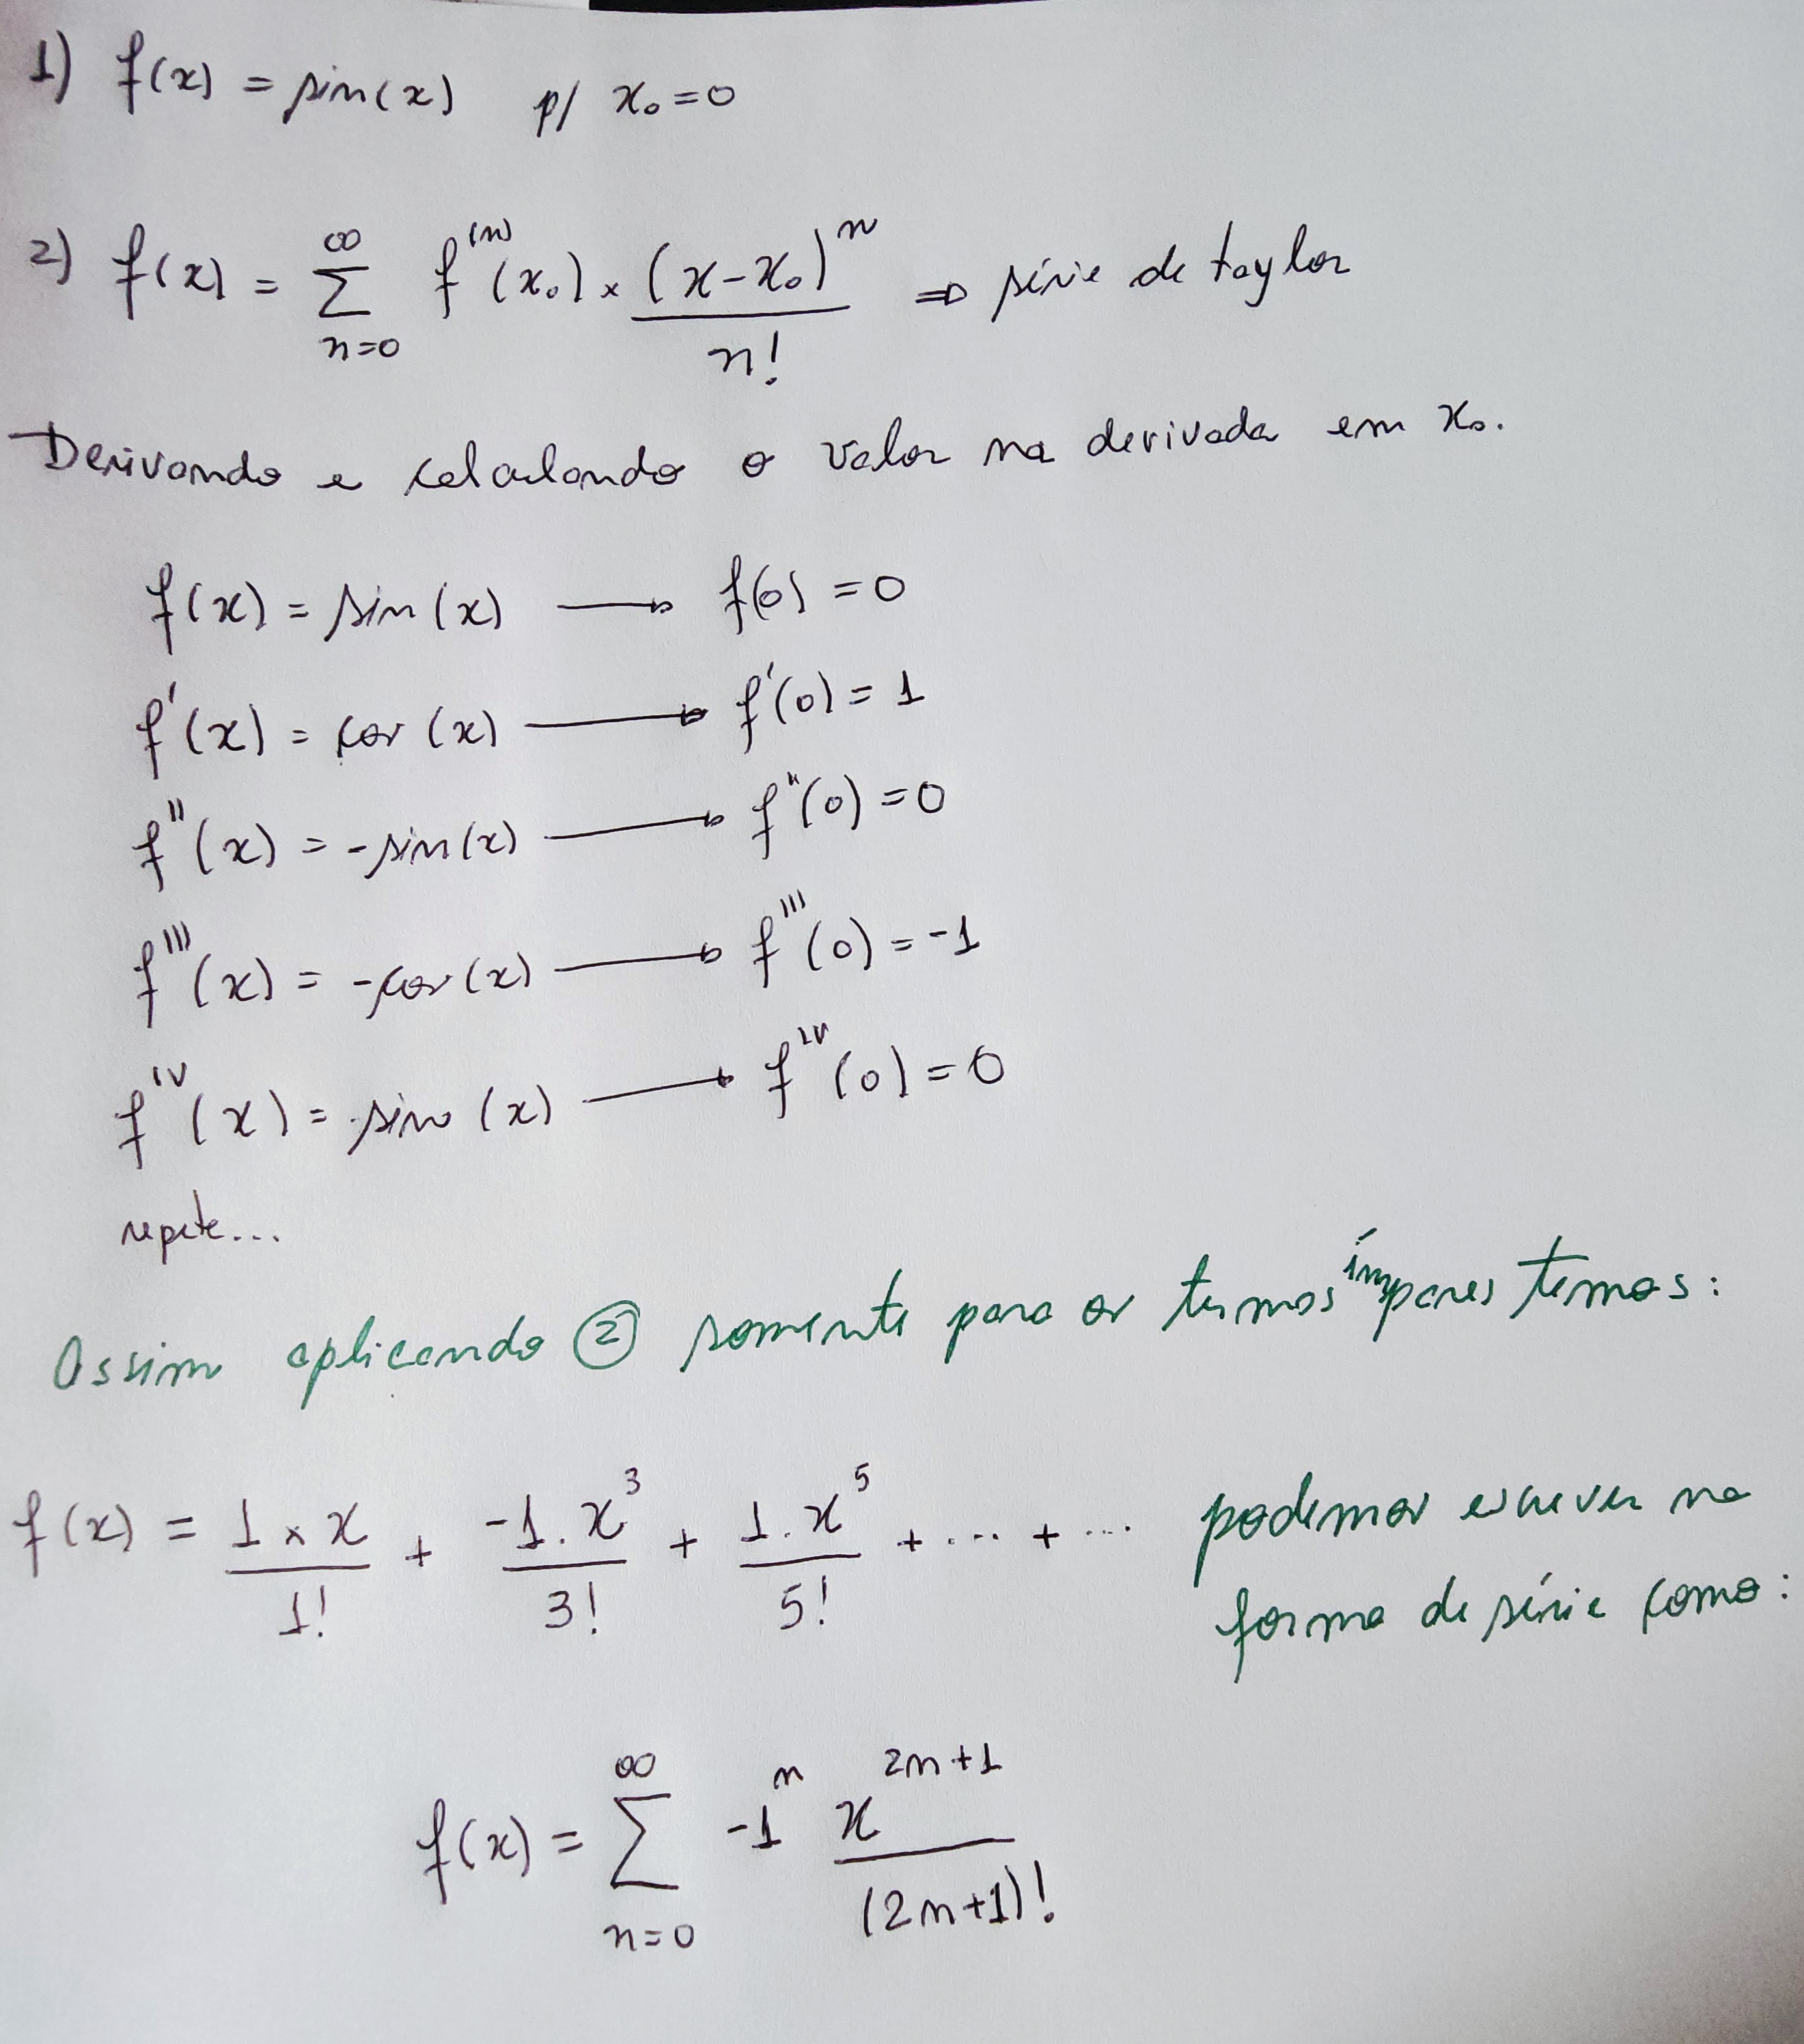 1) f(x) = sin(x) p/ x₀ = 0
2) f(x) = ∞ Σ n=0 f⁽ⁿ⁾(x₀) × (x-x₀)ⁿ / n! ⇒ série de taylor
Derivando e calculando o valor na derivada em x₀.
f(x) = sin(x) → f(0) = 0
f'(x) = cos(x) → f'(0) = 1
f''(x) = -sin(x) → f''(0) = 0
f'''(x) = -cos(x) → f'''(0) = -1
f^IV(x) = sin(x) → f^IV(0) = 0
repete...
Assim aplicando ② somente para os termos ímpares temos:
f(x) = 1 × x / 1! + -1 . x³ / 3! + 1 . x⁵ / 5! + ... + ... podemos escrever na
forma de série como:
f(x) = ∞ Σ n=0 -1ⁿ x²ⁿ⁺¹ / (2n+1)!